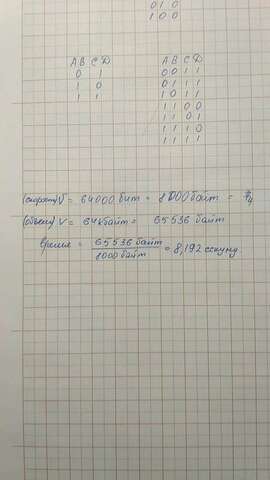 0 1 0
1 0 0
A B C D
0 1
1 0
1 1
A B C D
0 0 1 1
0 1 1 1
1 0 1 1
1 1 0 0
1 1 0 1
1 1 1 0
1 1 1 1
(скорость) V = 64000 бит = 8000 байт =
(объем) V = 64 Кбайт = 65536 байт
время = 65536 байт / 8000 байт = 8,192 секунд